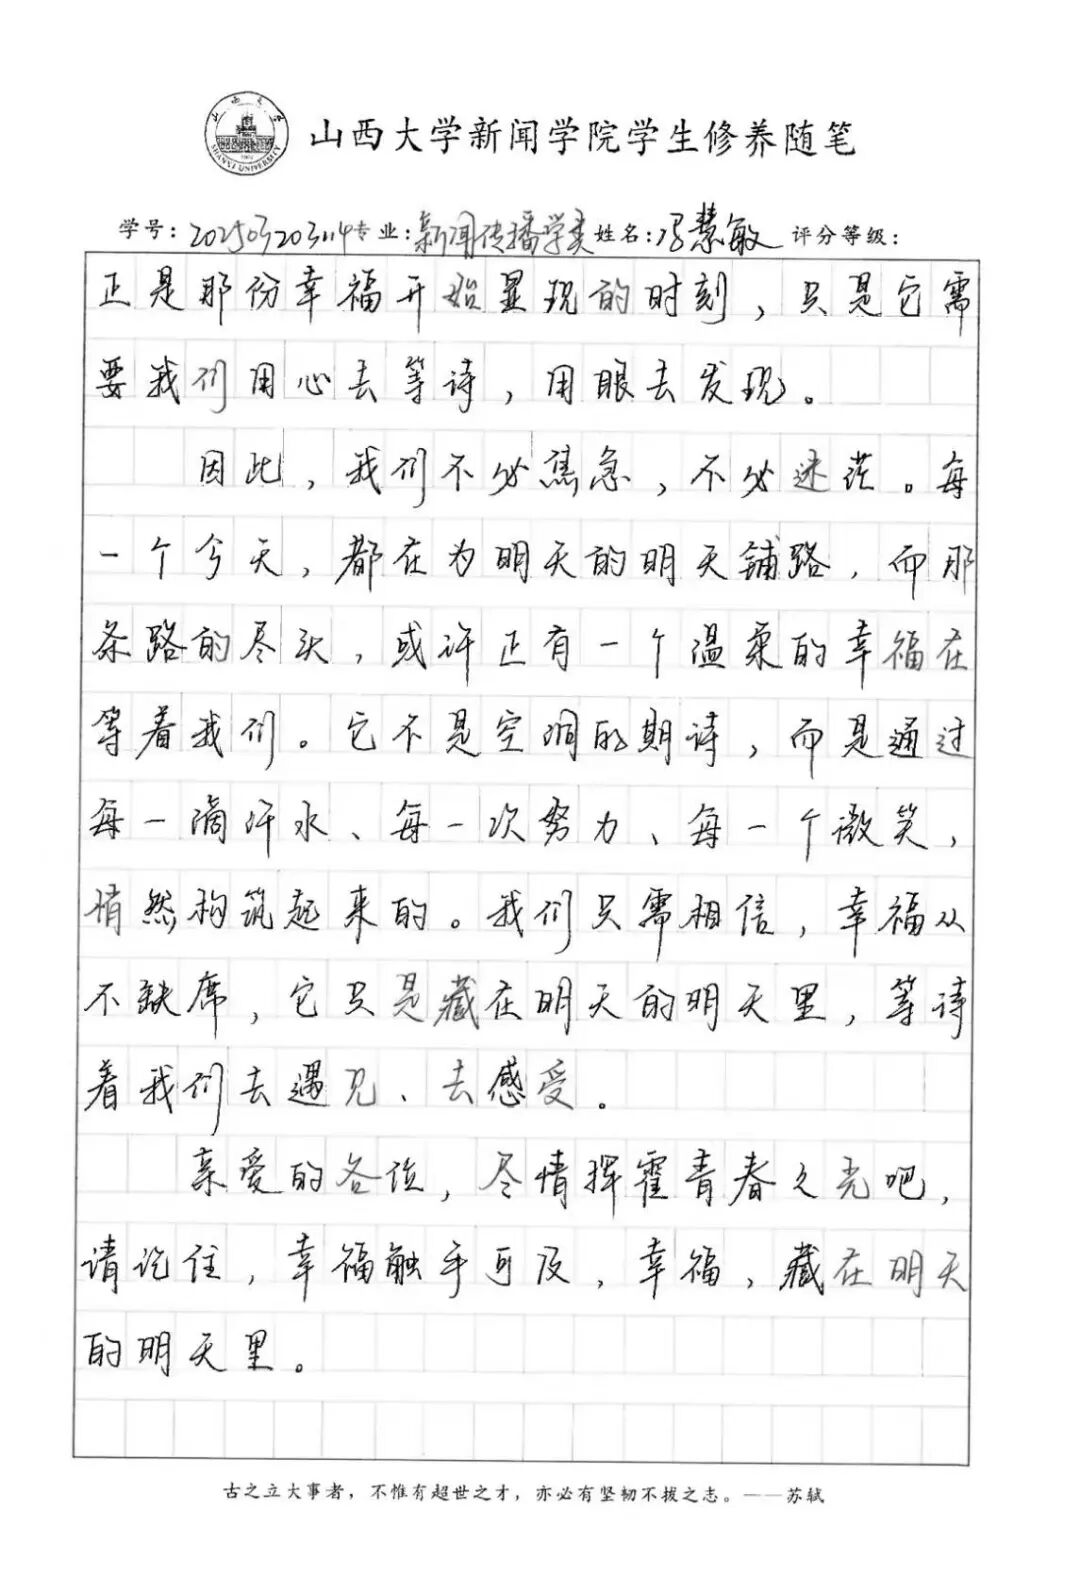 山西大学
SHANXI UNIVERSITY
1902
山西大学新闻学院学生修养随笔
学号: 202503203114 专业: 新闻传播学类 姓名: 冯慧敏 评分等级:
正是那份幸福开始显现的时刻，只是它需
要我们用心去等诗，用眼去发现。
因此，我们不必焦急，不必迷茫。每
一个今天，都在为明天的明天铺路，而那
条路的尽头，或许正有一个温柔的幸福在
等着我们。它不是空洞的期诗，而是通过
每一滴汗水、每一次努力、每一个微笑，
悄然构筑起来的。我们只需相信，幸福从
不缺席，它只是藏在明天的明天里，等诗
着我们去遇见、去感受。
亲爱的各位，尽情挥霍青春之光吧，
请记住，幸福触手可及，幸福，藏在明天
的明天里。
古之立大事者，不惟有超世之才，亦必有坚韧不拔之志。——苏轼